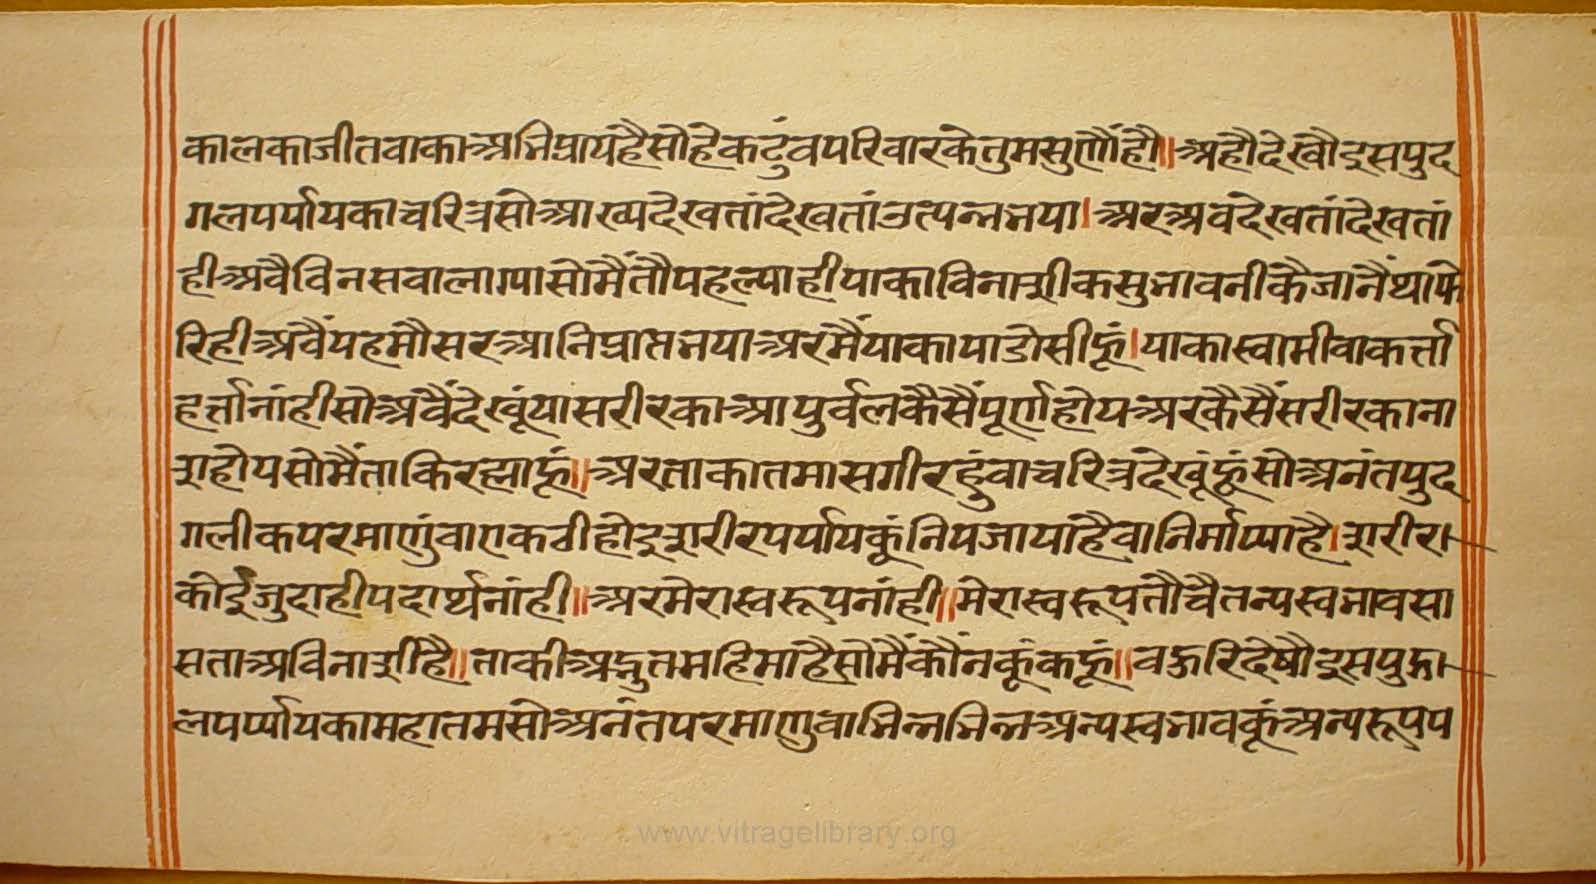 कालकाजीतवाकाअभिप्रायहैसोहेकटुंवपरिवारकेतुमसुणौंहौ॥अहौदेखौइसपुद
गलपर्यायकाचरित्रसोआख्यदेखतांदेखतांउत्पन्नभया।अरअवदेखतांदेखतां
हीअवैविनसवालाग्यासोमैंतौपहल्याहीयाकाविनाशीकसुभावनीकैजानैंथाफे
रिहीअवैंयहमौसरआनिप्राप्तभयाअरमैंयाकापाडोसीहूं।याकास्वामीवाकर्त्ता
हर्त्तानांहीसोअवैंदेखूंयासरीरकाआयुर्वलकैसैंपूर्णहोयअरकैसैंसरीरकाना
शहोयसोमैंताकिरह्याहूं॥अरताकातमासगीरहुंवाचरित्रदेखूंहूंसोअनंतपुद
गलीकपरमाणुंवाएकठीहोइशरीरपर्यायकूंनिपजायाहैवानिर्माप्याहै।शरीर।
कोईजुदाहीपदार्थनांही॥अरमेरास्वरूपनांही॥मेरास्वरूपतौचैतन्यस्वभावसा
सताअविनाशीहै॥ताकीअद्भुतमहिमाहैसोमैंकौंनकूंकहूं॥वऊरिदेषौइसपुद्ग।
लपर्य्यायकामहातमसोअनंतपरमाणुवाभिन्नभिन्नअन्यस्वभावकूंअन्यरूपप
www.vitragelibrary.org